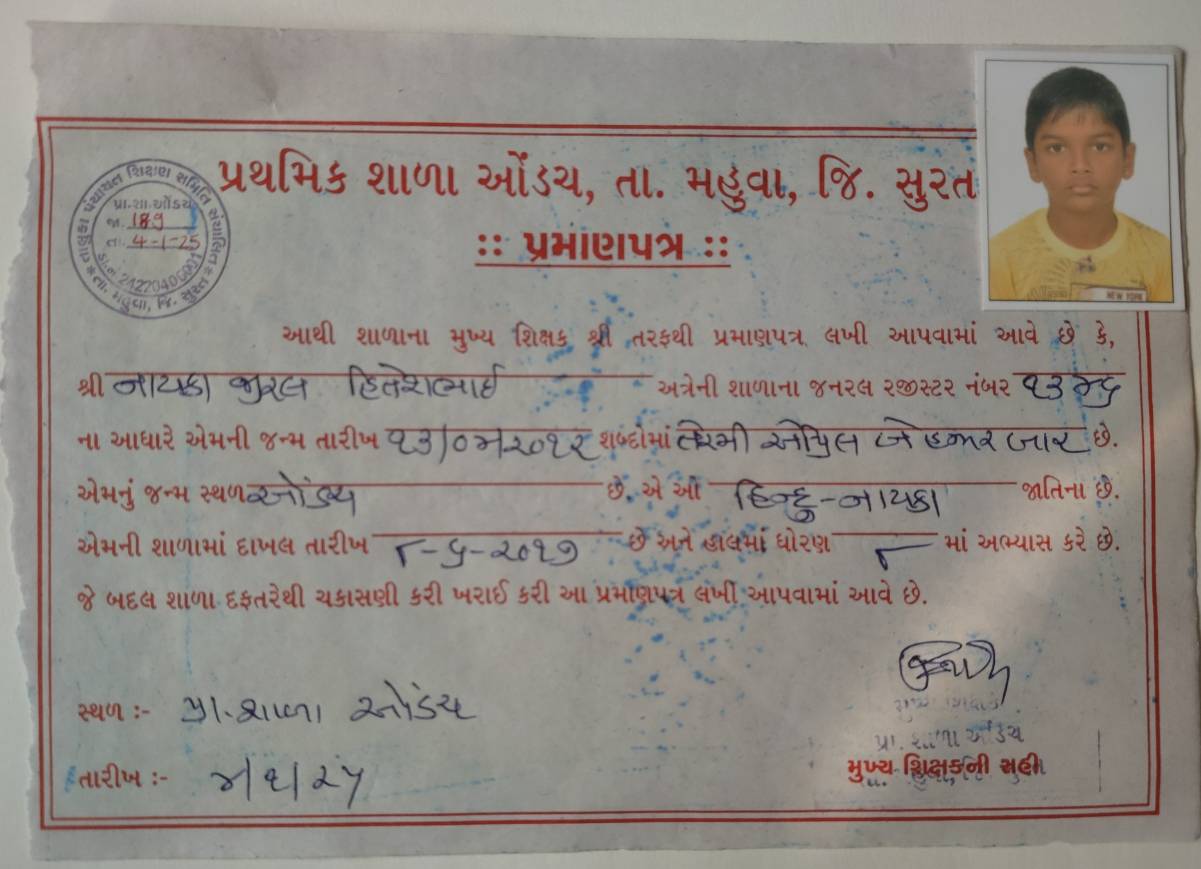 પ્રથમિક શાળા ઓંડચ, તા. મહુવા, જિ. સુરત
:: પ્રમાણપત્ર ::
તાલુકા પંચાયત શિક્ષણ સમિતિ સંચાલિત
પ્રા.શા.ઓંડચ
જા. 189
તા. 4-1-25
ડાયસ 24220400901
તા. મહુવા, જિ. સુરત
આથી શાળાના મુખ્ય શિક્ષક શ્રી તરફથી પ્રમાણપત્ર લખી આપવામાં આવે છે કે,
શ્રી નાયકા જીરલ હિતેશભાઈ અત્રેની શાળાના જનરલ રજીસ્ટર નંબર ૧૩૪૬
ના આધારે એમની જન્મ તારીખ ૧૩/૦૪/૨૦૧૨ શબ્દોમાં તેરમી એપ્રિલ બે હજાર બાર છે.
એમનું જન્મ સ્થળ ઓંડચ છે. એ ઓ હિન્દુ-નાયકા જાતિના છે.
એમની શાળામાં દાખલ તારીખ ૮-૬-૨૦૧૭ છે અને હાલમાં ધોરણ ૮ માં અભ્યાસ કરે છે.
જે બદલ શાળા દફતરેથી ચકાસણી કરી ખરાઈ કરી આ પ્રમાણપત્ર લખી આપવામાં આવે છે.
સ્થળ :- પ્રા.શાળા ઓંડચ
મુખ્ય શિક્ષક
પ્રા. શાળા ઓંડચ
તારીખ :- ૪/૧/૨૫
મુખ્ય શિક્ષકની સહી